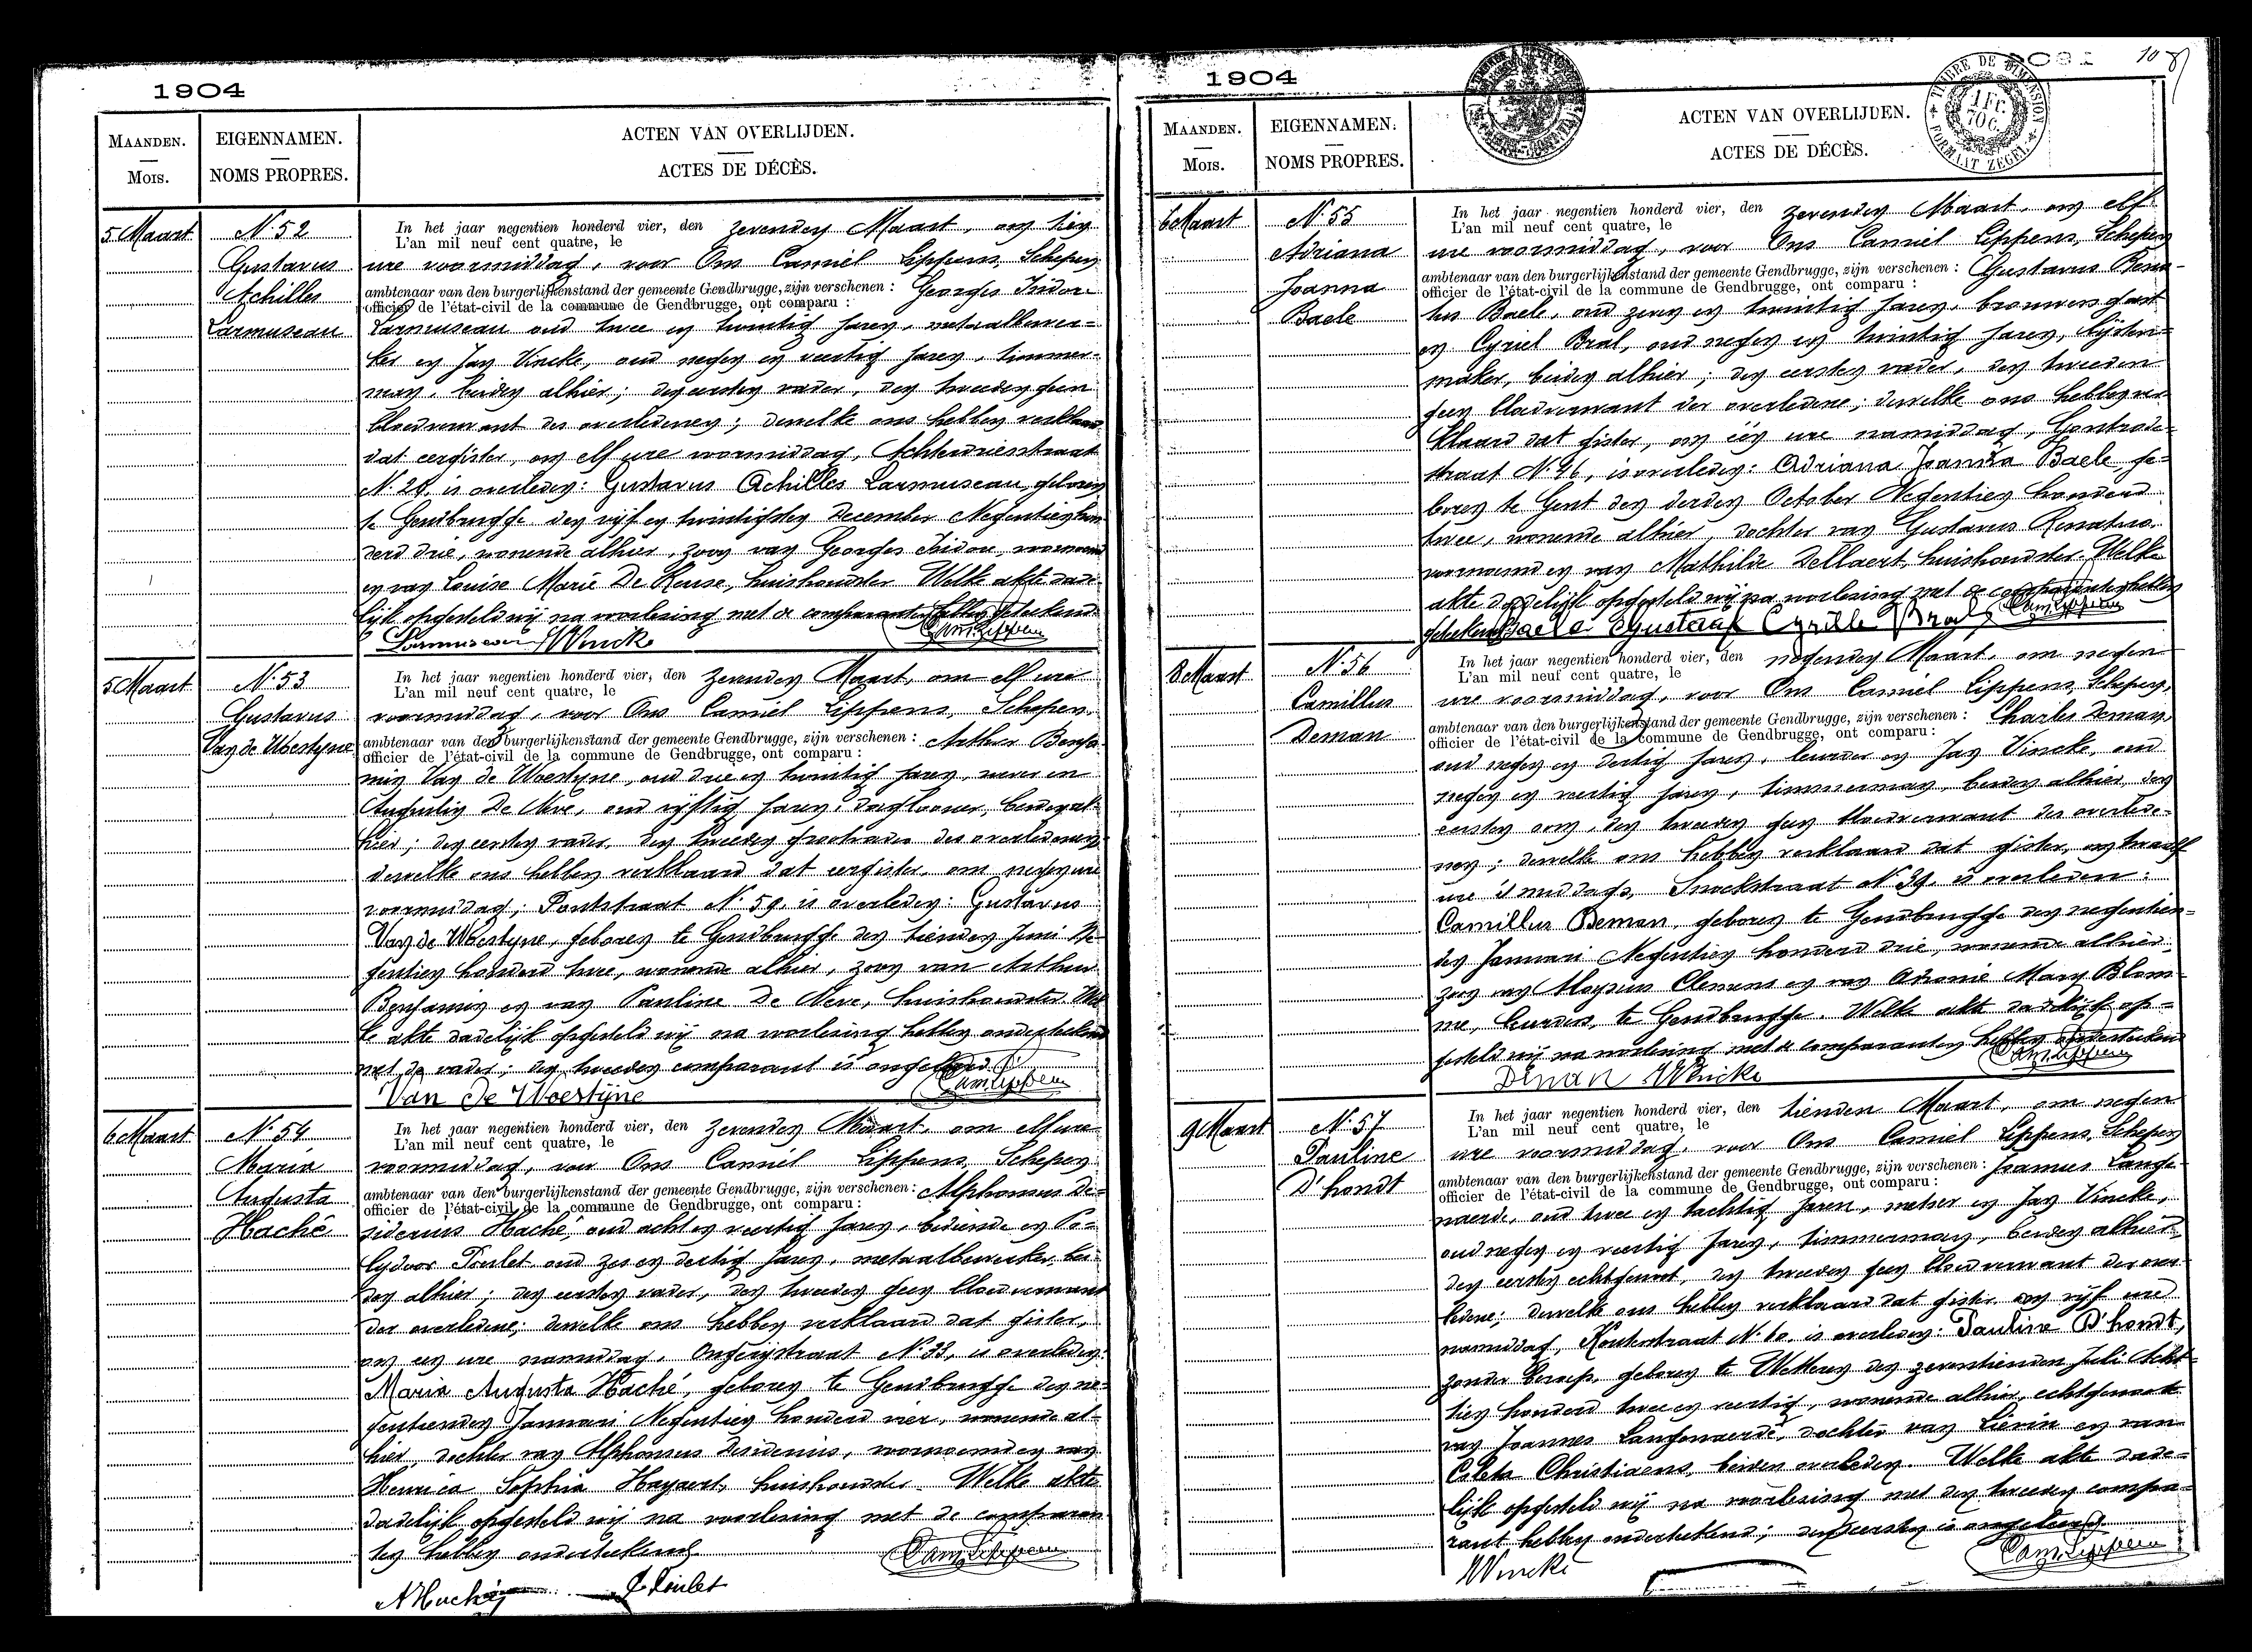 1904
MAANDEN.
Mois.
EIGENNAMEN.
NOMS PROPRES.
ACTEN VAN OVERLIJDEN.
ACTES DE DÉCÈS.
5 Maart
N. 52
Gustavus
Achilles
Larmuseau
In het jaar negentien honderd vier, den zevenden Maart, om tien
L'an mil neuf cent quatre, le
ure voormiddag, voor Ons Camiel Lippens, Schepen
ambtenaar van den burgerlijkenstand der gemeente Gendbrugge, zijn verschenen : Georges Isidore
officier de l'état-civil de la commune de Gendbrugge, ont comparu :
Larmuseau oud twee en twintig jaren, metaalbewer=
ker en Jan Vincke, oud negen en veertig jaren, timmer-
man, beiden alhier; den eersten vader, den tweeden geen
bloedverwant des overledenen; dewelke ons hebben verklaard
dat eergister, om elf ure voormiddag, Achterdriesstraat
is overleden: Gustavus Achilles Larmuseau, geboren
te Gendbrugge den vijf en twintigsten December Negentien hon
derd drie, wonende alhier, zoon van Georges Isidore, voornoemd
en van Louise Marie De Keuse, huishoudster Welke akte dade-
lijk opgesteld wij na voorlezing met de comparanten hebben geteekend
Larmuseau JVincke
Cam. Lippens
5 Maart
N. 53
Gustavus
Van de Woestyne
In het jaar negentien honderd vier, den zevenden Maart, om elf ure
L'an mil neuf cent quatre, le
voormiddag, voor Ons Camiel Lippens, Schepen,
ambtenaar van den burgerlijkenstand der gemeente Gendbrugge, zijn verschenen : Arthur Benja-
officier de l'état-civil de la commune de Gendbrugge, ont comparu :
min Van de Woestyne, oud drie en twintig jaren, wever en
Augustin De Neve, oud vijftig jaren, daglooner, beiden al-
hier; den eersten vader, den tweeden grootvader des overledenen;
dewelke ons hebben verklaard dat eergister, om negen ure
voormiddag, Pontstraat N. 59. is overleden: Gustavus
Van de Woestyne, geboren te Gendbrugge den tienden Juni Ne-
gentien honderd twee, wonende alhier, zoon van Arthur
Benjamin en van Pauline De Neve, huishoudster Wel
ke akte dadelijk opgesteld wij na voorlezing hebben onderteekend
met de vader; den tweeden comparant is ongeleerd.
Van de Woestÿne
Cam. Lippens
6 Maart
N. 54
Maria
Augusta
Haché
In het jaar negentien honderd vier, den zevenden Maart, om elf ure
L'an mil neuf cent quatre, le
voormiddag, voor Ons Camiel Lippens, Schepen
ambtenaar van den burgerlijkenstand der gemeente Gendbrugge, zijn verschenen : Alphonsus De-
officier de l'état-civil de la commune de Gendbrugge, ont comparu :
siderius Haché, oud acht en veertig jaren, bediende en Po-
lydoor Poulet oud zes en dertig jaren, metaalbewerker, bei-
den alhier; den eersten vader, den tweeden geen bloedverwant
der overledene; dewelke ons hebben verklaard dat gister,
om een ure namiddag, N. 33, is overleden:
Maria Augusta Haché, geboren te Gendbrugge den ne-
gentienden Januari Negentien honderd vier, wonende al-
hier, dochter van Alphonsus Desiderius, voornoemd en van
Henrica Sophia Hayaert, huishoudster. Welke akte
dadelijk opgesteld wij na voorlezing met de comparan
ten hebben onderteekend
Cam. Lippens
AHaché
P Poulet
1904
MAANDEN.
Mois.
EIGENNAMEN.
NOMS PROPRES.
ACTEN VAN OVERLIJDEN.
ACTES DE DÉCÈS.
TIMBRE DE DIMENSION
1 FC.
70 C.
FORMAAT ZEGEL
6 Maart
N. 55
Adriana
Joanna
Baele
In het jaar negentien honderd vier, den zevenden Maart, om elf
L'an mil neuf cent quatre, le
ure voormiddag, voor Ons Camiel Lippens, Schepen
ambtenaar van den burgerlijkenstand der gemeente Gendbrugge, zijn verschenen : Gustavus Rena-
officier de l'état-civil de la commune de Gendbrugge, ont comparu :
tus Baele, oud zeven en twintig jaren, brouwersgast
en Cyriel Bral, oud negen en twintig jaren, lijsten-
maker, beiden alhier; den eersten vader, den tweeden
geen bloedverwant der overledene; dewelke ons hebben ver
klaard dat gister, om één ure namiddag, Gontrode-
straat is overleden: Adriana Joanna Baele, ge-
boren te Gent den derden October Negentien honderd
twee, wonende alhier, dochter van Gustavus Renatus,
voornoemd en van Mathilde Dellaert, huishoudster. Welke
akte dadelijk opgesteld wij na voorlezing met de comparanten hebben
geteekend Baele Gustaaf Cyrille Bral
Cam. Lippens
8 Maart
N. 56
Camillus
Deman
In het jaar negentien honderd vier, den negenden Maart, om negen
L'an mil neuf cent quatre, le
ure voormiddag, voor Ons Camiel Lippens, Schepen,
ambtenaar van den burgerlijkenstand der gemeente Gendbrugge, zijn verschenen : Charles Deman,
officier de l'état-civil de la commune de Gendbrugge, ont comparu :
oud negen en dertig jaren, leurder en Jan Vincke, oud
negen en veertig jaren, timmerman, beiden alhier, den
eersten oom, den tweeden geen bloedverwant des overlede-
nen; dewelke ons hebben verklaard dat gister, om twaalf
ure 's middags, Snoekstraat N. 39. is overleden:
Camillus Deman, geboren te Gendbrugge den negentien-
den Januari Negentien honderd drie, wonende alhier,
zoon van Aloysius Clemens en van Mary Blom-
me, leurders, te Gendbrugge. Welke akte dadelijk op-
gesteld wij na voorlezing met de comparanten hebben onderteekend
Deman JVincke
Cam. Lippens
9 Maart
N. 57
Pauline
D'hondt
In het jaar negentien honderd vier, den tienden Maart, om negen
L'an mil neuf cent quatre, le
ure voormiddag, voor Ons Camiel Lippens, Schepen
ambtenaar van den burgerlijkenstand der gemeente Gendbrugge, zijn verschenen : Joannes Lange-
officier de l'état-civil de la commune de Gendbrugge, ont comparu :
naerde, oud twee en tachtig jaren, metser en Jan Vincke,
oud negen en veertig jaren, timmerman, beiden alhier;
den eersten echtgenoot, den tweeden geen bloedverwant der over
ledene; dewelke ons hebben verklaard dat gister om vijf ure
namiddag, Kouterstraat is overleden: Pauline D'hondt,
zonder beroep, geboren te Wetteren den zeventienden Juli Acht-
tien honderd twee en veertig, wonende alhier, echtgenoote
van Joannes Langenaerde, dochter van Lievin en van
Coleta Christiaens, beiden overleden. Welke akte dade-
lijk opgesteld wij na voorlezing met den tweeden compa-
rant hebben onderteekend; den eersten is ongeleerd.
JVincke
Cam. Lippens